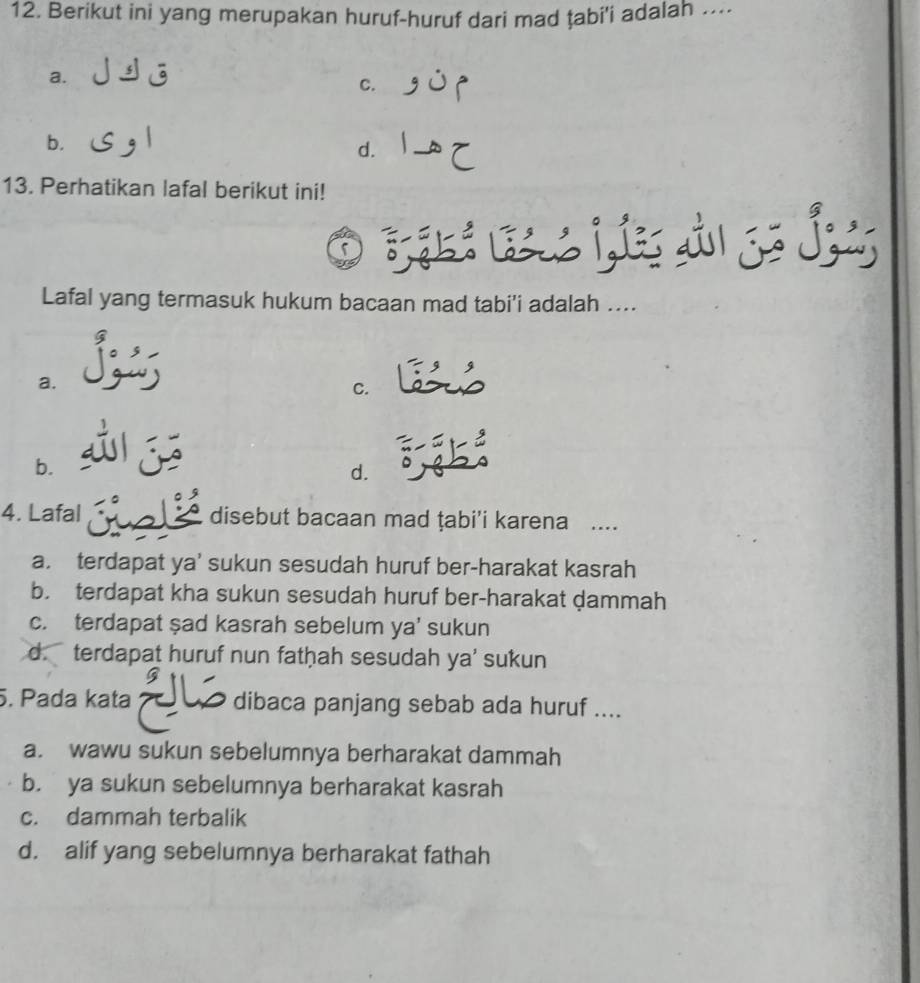 12. Berikut ini yang merupakan huruf-huruf dari mad ṭabi'i adalah ....
a. ق ك ل
c. م ن و
b. ا و ي
d. ح هـ ا
13. Perhatikan lafal berikut ini!
رَسُوْلٌ مِّنَ اللّٰهِ يَتْلُوْا صُحُفًا مُّطَهَّرَةً ۝٢
Lafal yang termasuk hukum bacaan mad tabi'i adalah ....
a. رَسُوْلٌ
c. صُحُفًا
b. مِّنَ اللّٰهِ
d. مُّطَهَّرَةً
4. Lafal مُخْلِصِيْنَ disebut bacaan mad ṭabi'i karena ....
a. terdapat ya' sukun sesudah huruf ber-harakat kasrah
b. terdapat kha sukun sesudah huruf ber-harakat ḍammah
c. terdapat ṣad kasrah sebelum ya' sukun
d. terdapat huruf nun fatḥah sesudah ya' sukun
5. Pada kata صَالِحٌ dibaca panjang sebab ada huruf ....
a. wawu sukun sebelumnya berharakat dammah
b. ya sukun sebelumnya berharakat kasrah
c. dammah terbalik
d. alif yang sebelumnya berharakat fathah